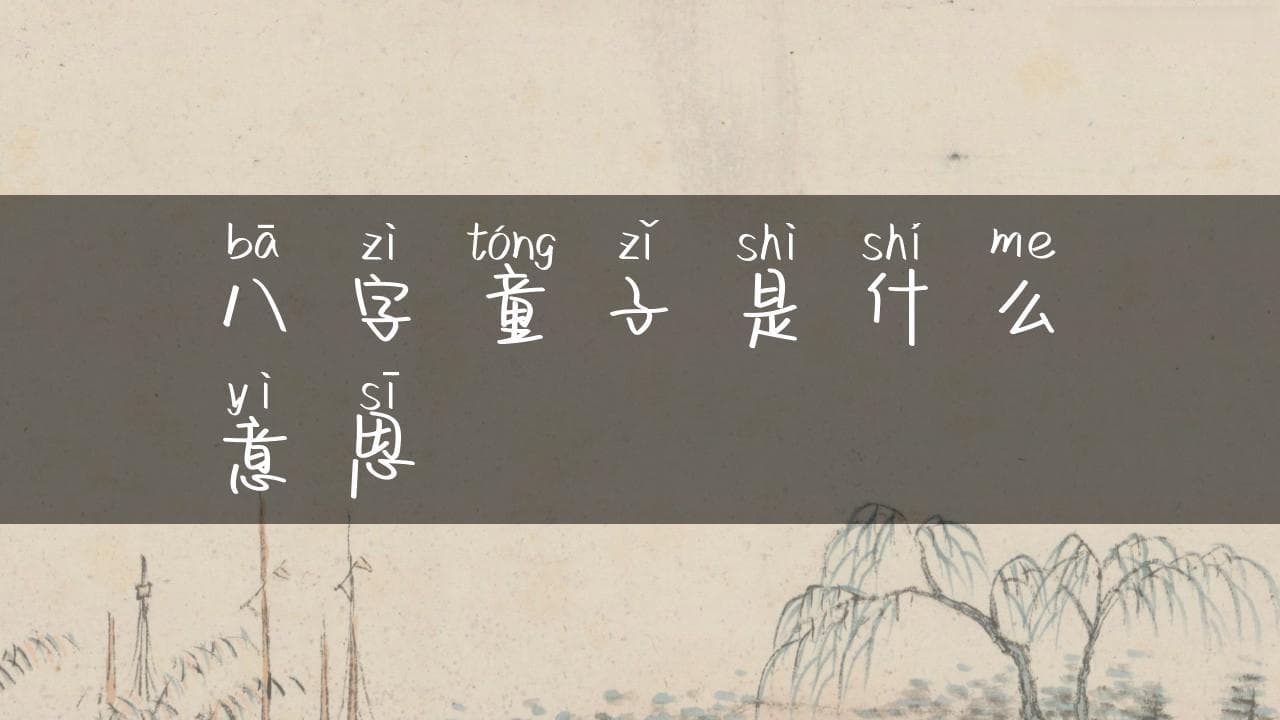 bā zì tóng zǐ shì shí me
八字童子是什么
yì sī
意思